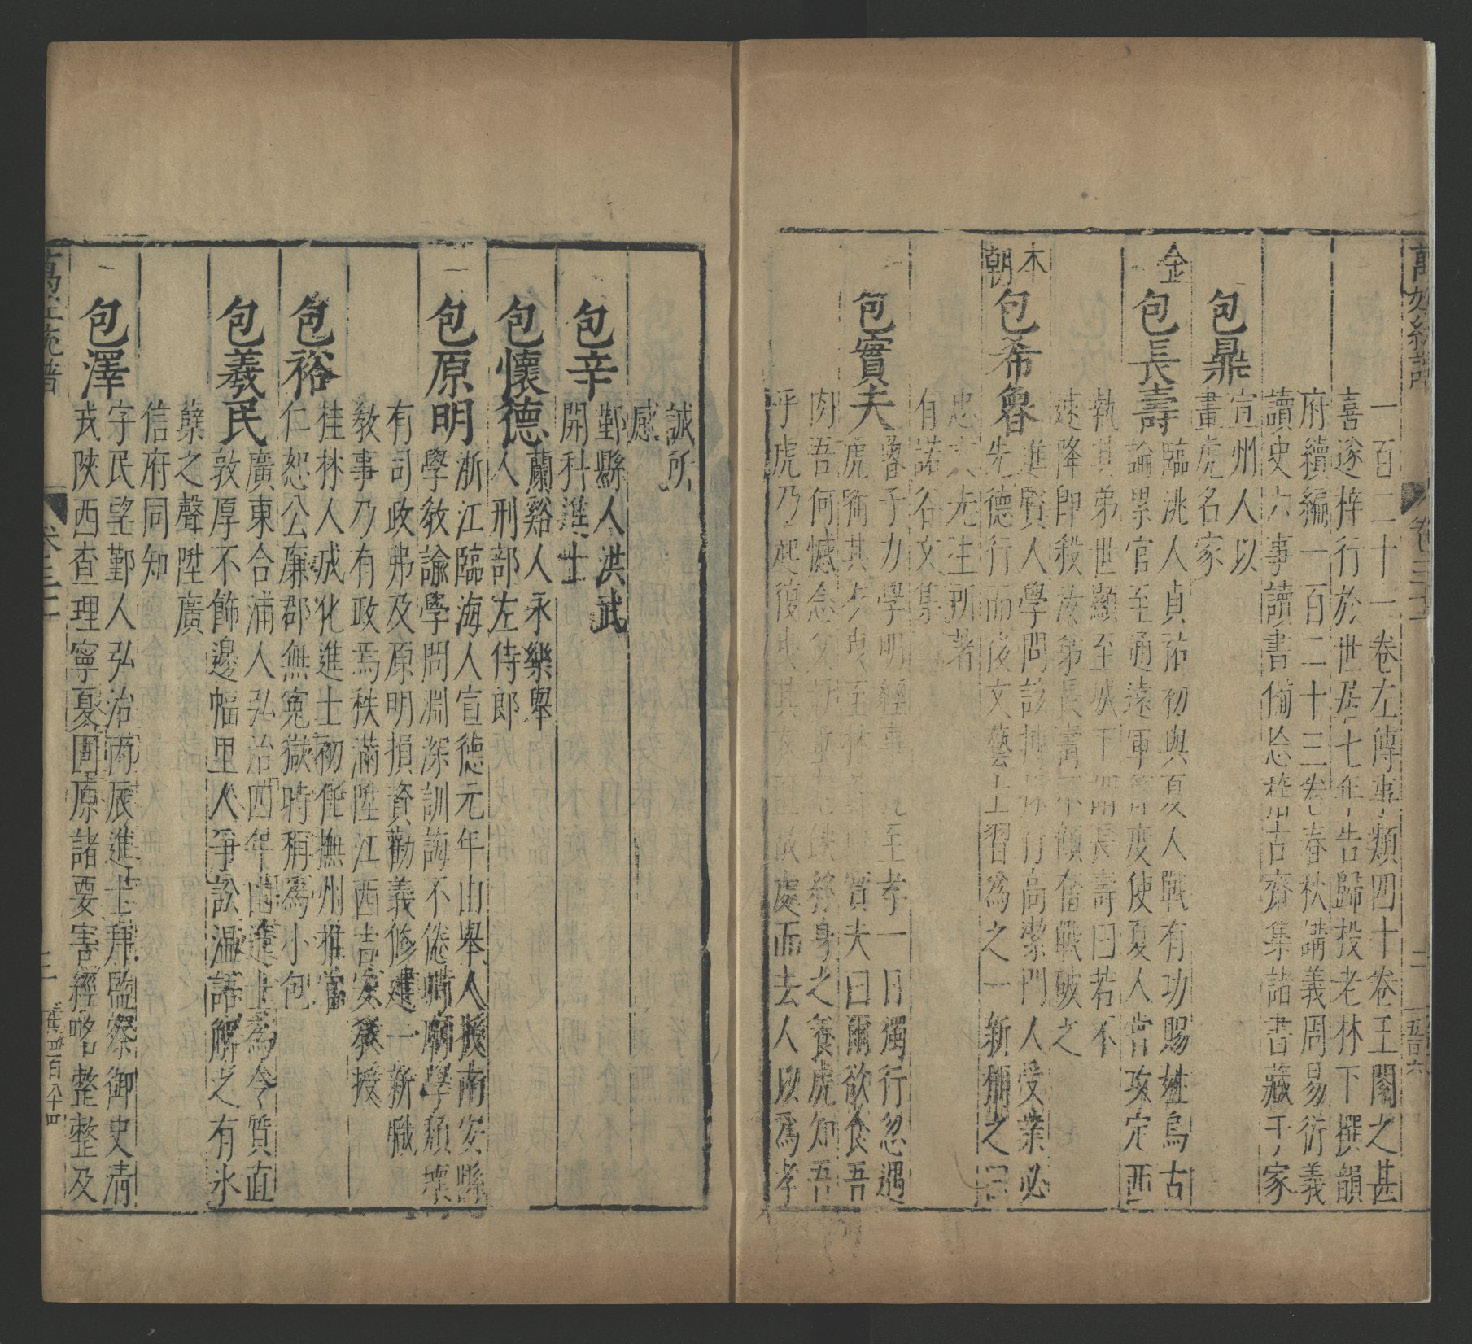 萬姓統譜
卷三十一
一百二十一卷左傳事類四十卷王閣之甚
喜遂梓行於世居七年告歸投老林下撰韻
府續編一百二十三卷春秋講義周易衍義
讀史力事讀書備忘稽古齋集諸書藏于家
包鼎
宣州人以
畫虎名家
金
包長壽
臨洮人貞祐初與夏人戰有功賜姓烏古
論累官至通遠軍節度使夏人嘗攻定西
執其弟世顯至城下謂長壽曰若不
速降即殺汝弟長壽不顧奮戰破之
本朝
包希魯
進賢人學問該博操行高潔門人受業必
先德行而後文藝士習為之一新稱之曰
忠文先生所著
有諾谷文集
包實夫
魯子力學明經事親至孝一日獨行忽遇
虎銜其衣曳至林實夫曰爾欲食吾
肉吾何憾念父母終身之養虎知吾
乎虎乃起復曳其故處而去人以為孝
誠所
感
包辛
鄞縣人洪武
開科進士
包懷德
蘭谿人永樂舉
人刑部左侍郎
包原明
浙江臨海人宣德元年由舉人授南安縣
學教諭學問淵深訓誨不倦時廟學頹壞
有司政弗及原明捐資勸義修建一新職
教事乃有政焉秩滿陞江西吉安教授
包裕
桂林人成化進士初任撫州推官
仁恕公廉郡無冤獄時稱為小包
包義民
廣東合浦人弘治四年由進士為令質直
敦厚不飾邊幅里人爭訟温語解之有氷
蘗之聲陞廣
信府同知
包澤
字民望鄞人弘治丙辰進士拜監察御史清
戎陝西查理寧夏固原諸要害經略整整及
萬姓統譜
卷三十一